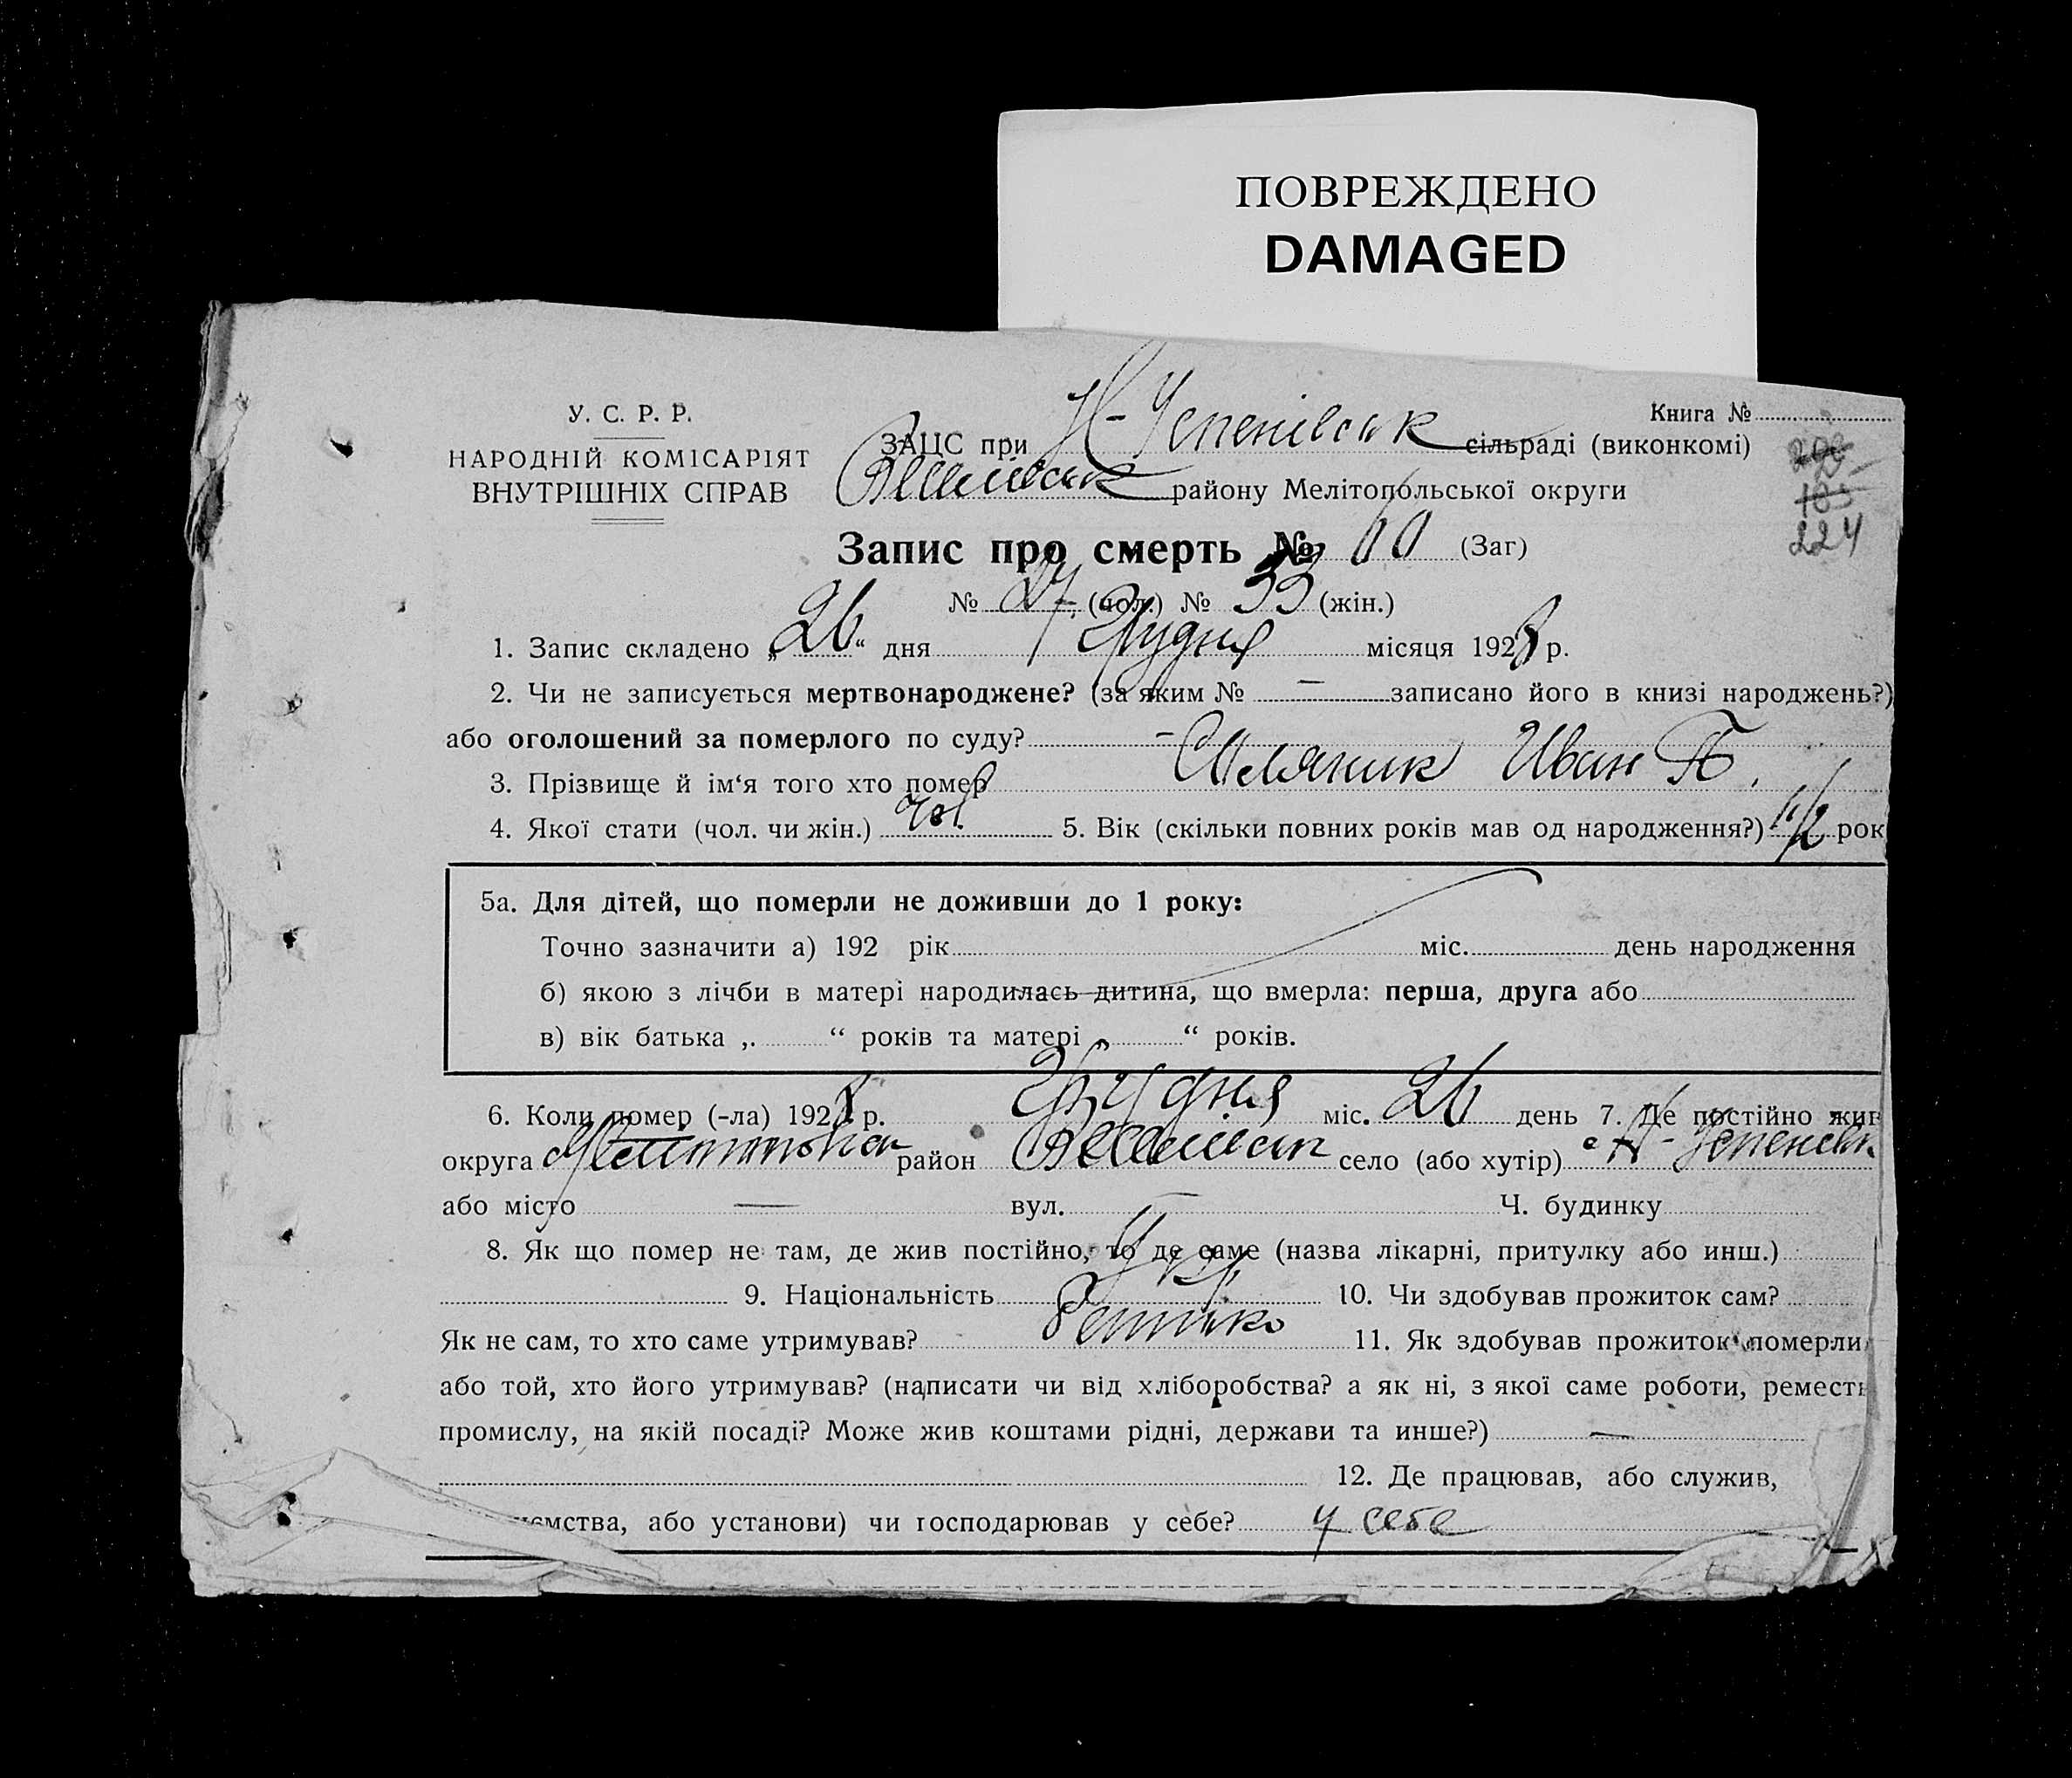 ПОВРЕЖДЕНО
DAMAGED
У. С. Р. Р.
НАРОДНІЙ КОМІСАРІЯТ
ВНУТРІШНІХ СПРАВ
Книга №
ЗАЦС при Н-Успенівськ сільраді (виконкомі)
району Мелітопольської округи
224
Запис про смерть № 60 (Заг)
№ 27 (чол.) № 33 (жін.)
1. Запис складено „26“ дня Грудня місяця 1928 р.
2. Чи не записується мертвонароджене? (за яким № — записано його в книзі народжень?)
або оголошений за померлого по суду? —
3. Прізвище й ім‘я того хто помер Иван П.
4. Якої стати (чол. чи жін.) чол. 5. Вік (скільки повних років мав од народження?) 1 1/2 рок
5а. Для дітей, що померли не доживши до 1 року:
Точно зазначити а) 192 рік міс. день народження
б) якою з лічби в матері народилась дитина, що вмерла: перша, друга або
в) вік батька „ “ років та матері „ “ років.
6. Коли помер (-ла) 1928 р. Грудня міс. 26 день 7. Де постійно жив
округа район село (або хутір) с Н-Успенівк
або місто — вул. — Ч. будинку
8. Як що помер не там, де жив постійно, то де саме (назва лікарні, притулку або инш.)
9. Національність Укр. 10. Чи здобував прожиток сам?
Як не сам, то хто саме утримував? 11. Як здобував прожиток померли
або той, хто його утримував? (написати чи від хліборобства? а як ні, з якої саме роботи, ремест
промислу, на якій посаді? Може жив коштами рідні, держави та инше?) —
12. Де працював, або служив,
ємства, або установи) чи господарював у себе? у себе